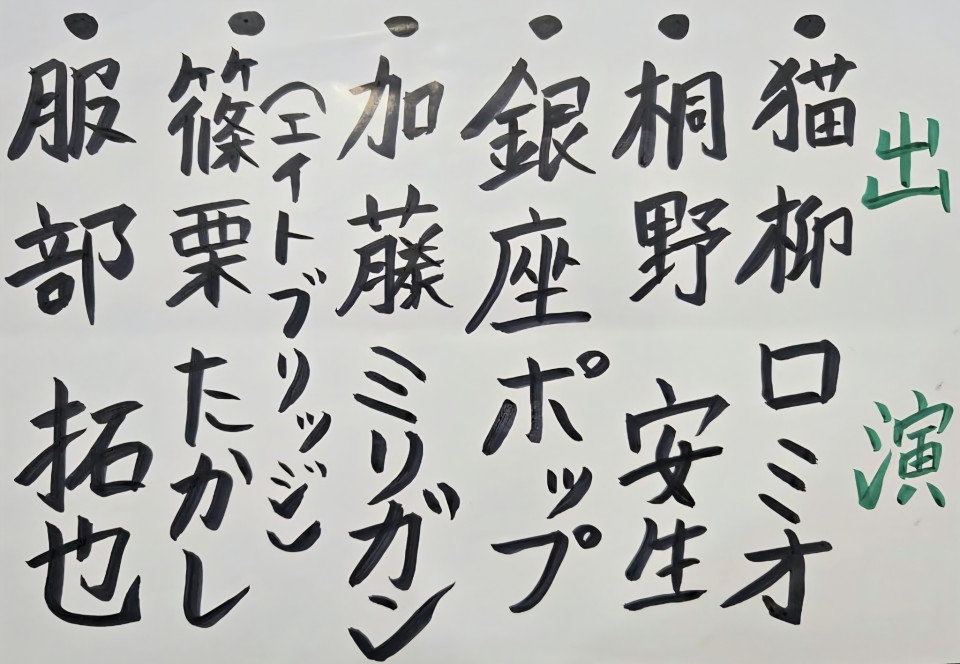 出演
・猫柳ロミオ
・桐野安生
・銀座ポップ
・加藤ミリガン
(エイトブリッジ)
・篠栗たかし
・服部拓也